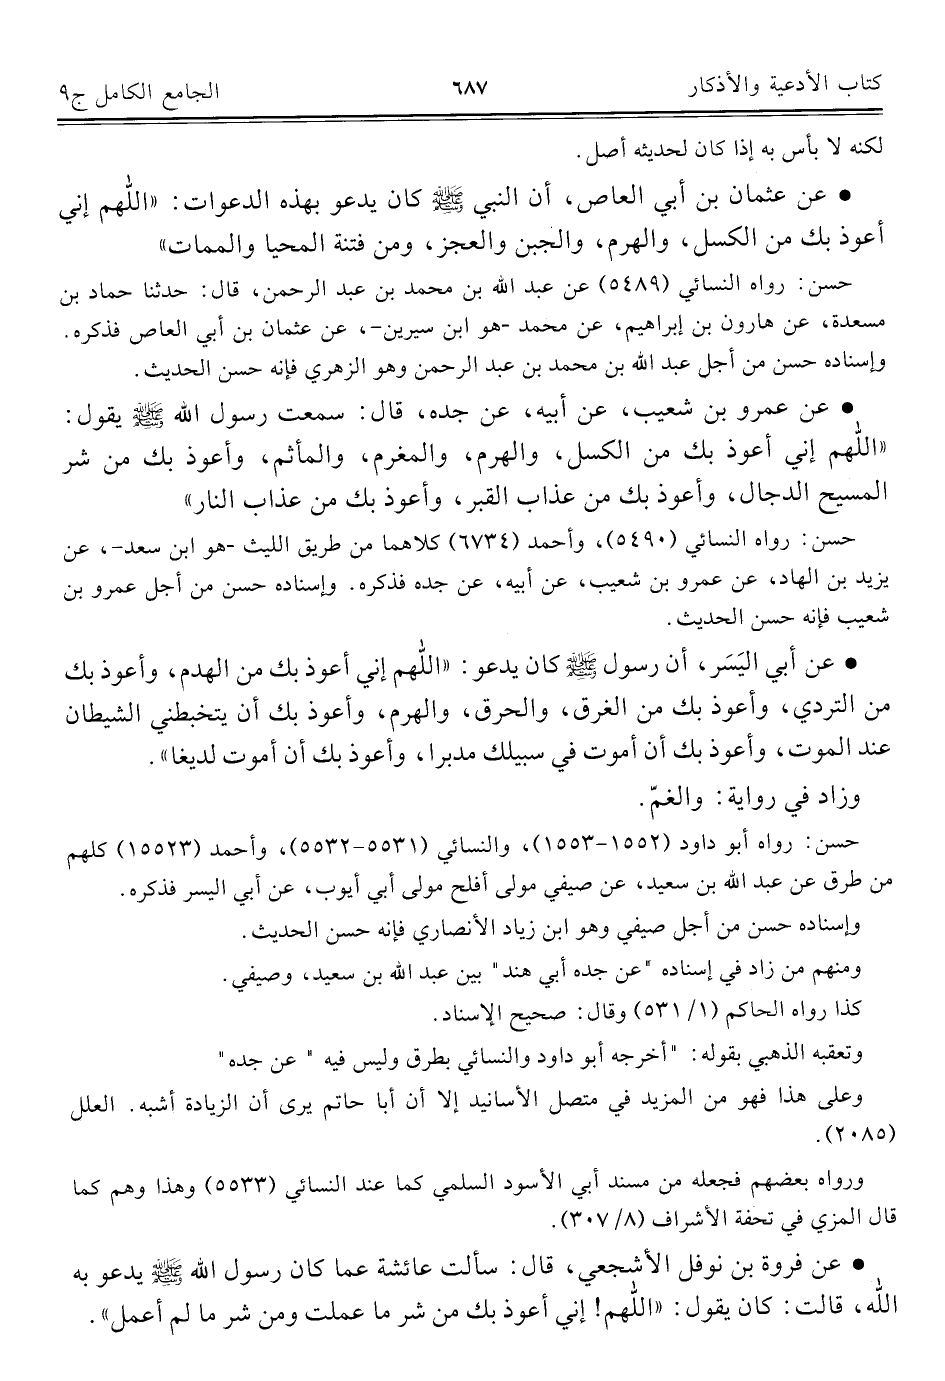 كتاب الأدعية والأذكار ٦٨٧ الجامع الكامل ج٩
لكنه لا بأس به إذا كان لحديثه أصل.
● عن عثمان بن أبي العاص، أن النبي ﷺ كان يدعو بهذه الدعوات: «اللّٰهم إني
أعوذ بك من الكسل، والهرم، والجبن والعجز، ومن فتنة المحيا والممات»
حسن: رواه النسائي (٥٤٨٩) عن عبد الله بن محمد بن عبد الرحمن، قال: حدثنا حماد بن
مسعدة، عن هارون بن إبراهيم، عن محمد -هو ابن سيرين-، عن عثمان بن أبي العاص فذكره.
وإسناده حسن من أجل عبد الله بن محمد بن عبد الرحمن وهو الزهري فإنه حسن الحديث.
● عن عمرو بن شعيب، عن أبيه، عن جده، قال: سمعت رسول الله ﷺ يقول:
«اللّٰهم إني أعوذ بك من الكسل، والهرم، والمغرم، والمأثم، وأعوذ بك من شر
المسيح الدجال، وأعوذ بك من عذاب القبر، وأعوذ بك من عذاب النار»
حسن: رواه النسائي (٥٤٩٠)، وأحمد (٦٧٣٤) كلاهما من طريق الليث -هو ابن سعد-، عن
يزيد بن الهاد، عن عمرو بن شعيب، عن أبيه، عن جده فذكره. وإسناده حسن من أجل عمرو بن
شعيب فإنه حسن الحديث.
● عن أبي اليَسَر، أن رسول ﷺ كان يدعو: «اللّٰهم إني أعوذ بك من الهدم، وأعوذ بك
من التردي، وأعوذ بك من الغرق، والحرق، والهرم، وأعوذ بك أن يتخبطني الشيطان
عند الموت، وأعوذ بك أن أموت في سبيلك مدبرا، وأعوذ بك أن أموت لديغا».
وزاد في رواية: والغمّ.
حسن: رواه أبو داود (١٥٥٢-١٥٥٣)، والنسائي (٥٥٣١-٥٥٣٢)، وأحمد (١٥٥٢٣) كلهم
من طرق عن عبد الله بن سعيد، عن صيفي مولى أفلح مولى أبي أيوب، عن أبي اليسر فذكره.
وإسناده حسن من أجل صيفي وهو ابن زياد الأنصاري فإنه حسن الحديث.
ومنهم من زاد في إسناده "عن جده أبي هند" بين عبد الله بن سعيد، وصيفي.
كذا رواه الحاكم (١/ ٥٣١) وقال: صحيح الإسناد.
وتعقبه الذهبي بقوله: "أخرجه أبو داود والنسائي بطرق وليس فيه " عن جده"
وعلى هذا فهو من المزيد في متصل الأسانيد إلا أن أبا حاتم يرى أن الزيادة أشبه. العلل
(٢٠٨٥).
ورواه بعضهم فجعله من مسند أبي الأسود السلمي كما عند النسائي (٥٥٣٣) وهذا وهم كما
قال المزي في تحفة الأشراف (٨/ ٣٠٧).
● عن فروة بن نوفل الأشجعي، قال: سألت عائشة عما كان رسول الله ﷺ يدعو به
اللّٰه، قالت: كان يقول: «اللّٰهم! إني أعوذ بك من شر ما عملت ومن شر ما لم أعمل».